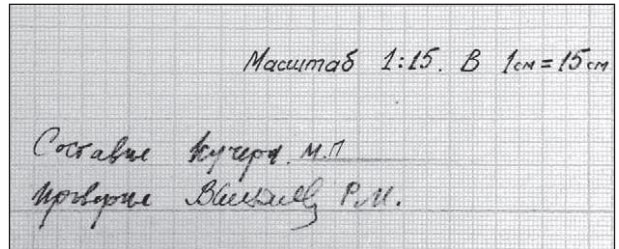 Масштаб 1:15. В 1см = 15 см
Составил Кучера М.П
Проверил Р.М.